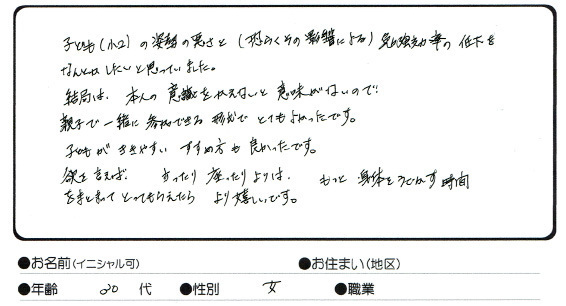 子ども(小2)の姿勢の悪さと(恐らくその影響による)勉強効率の低下を
なんとかしたいと思っていました。
結局は、本人の意識をかえないと意味がないので
親子で一緒に参加できる形がで とてもよかったです。
子どもがききやすい すすめ方も良かったです。
欲を言えば、 立ったり座ったりよりは、 もっと身体をうごかす時間
をまとめてとってもらえたら より嬉しいです。
●お名前(イニシャル可) ●お住まい(地区)
●年齢 30 代 ●性別 女 ●職業